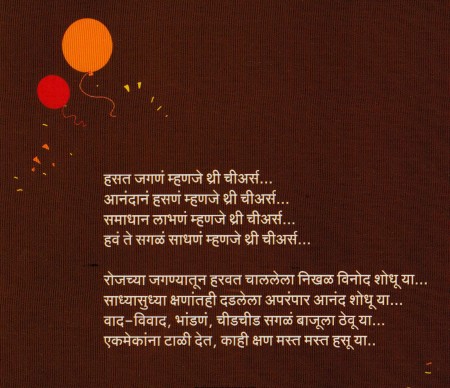 हसत जगणं म्हणजे थ्री चीअर्स...
आनंदानं हसणं म्हणजे थ्री चीअर्स...
समाधान लाभणं म्हणजे थ्री चीअर्स...
हवं ते सगळं साधणं म्हणजे थ्री चीअर्स...
रोजच्या जगण्यातून हरवत चाललेला निखळ विनोद शोधू या...
साध्यासुध्या क्षणांतही दडलेला अपरंपार आनंद शोधू या...
वाद-विवाद, भांडणं, चीडचीड सगळं बाजूला ठेवू या...
एकमेकांना टाळी देत, काही क्षण मस्त मस्त हसू या..